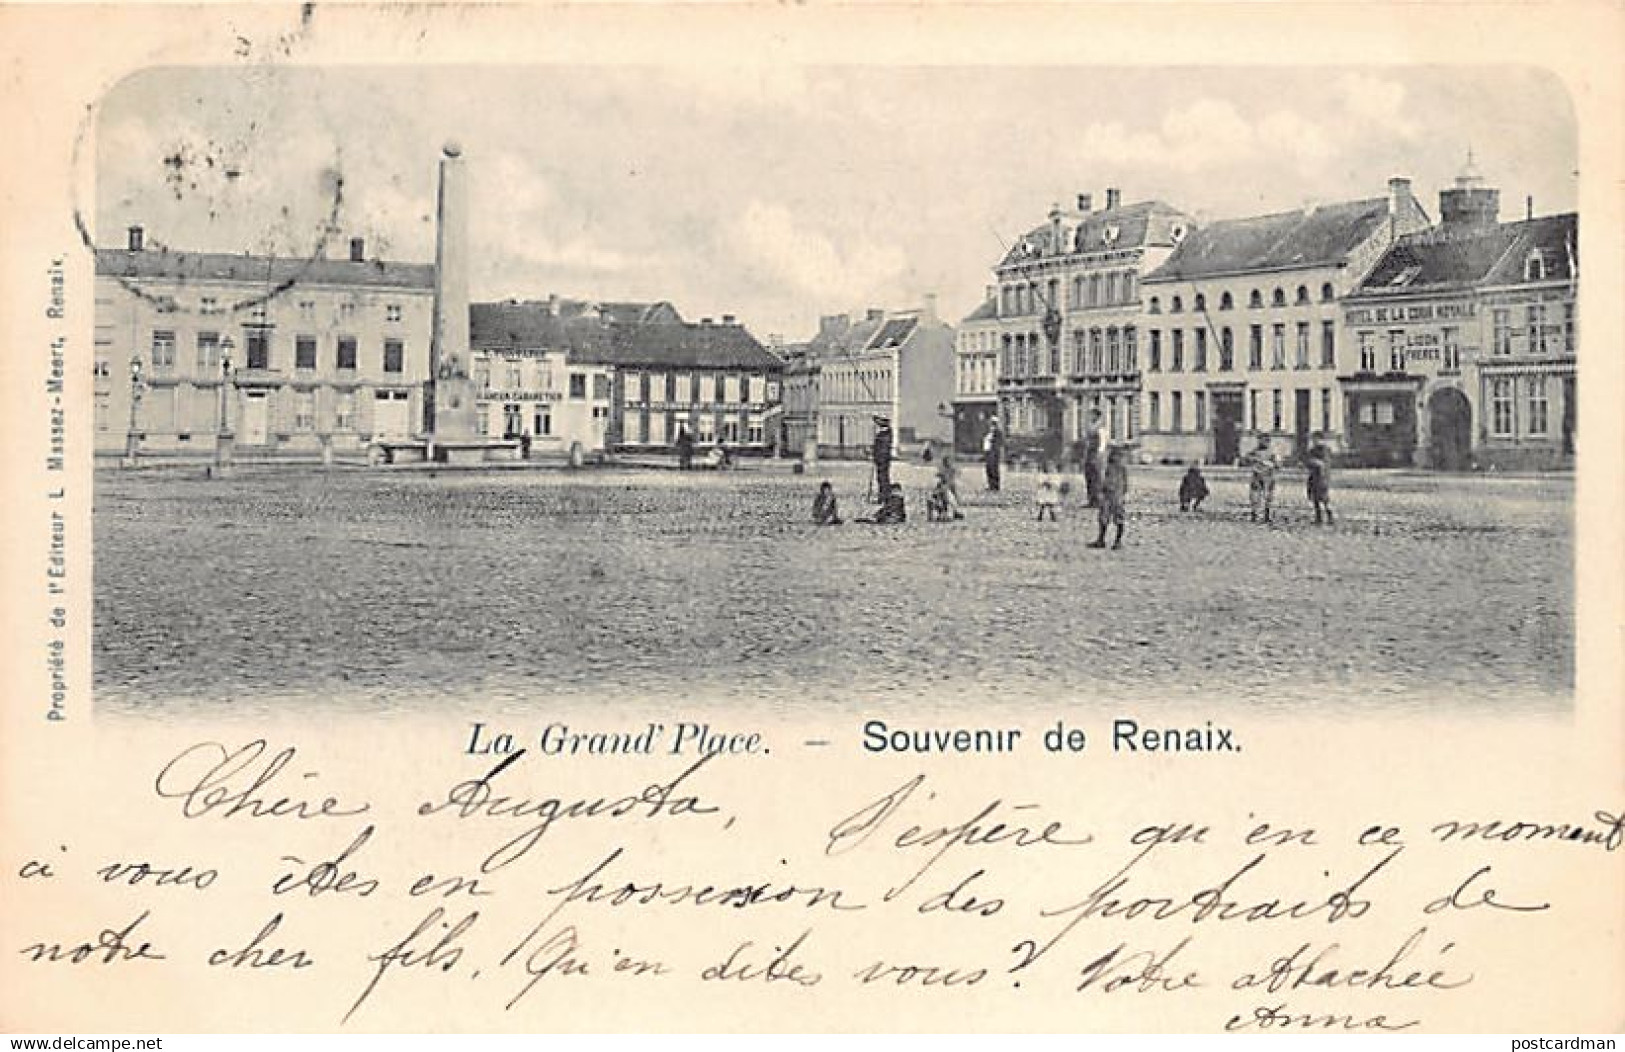 HOTEL DE LA COUR ROYALE
LIGON
FRERES
CABARETIER
Propriété de l'Editeur L Massez-Meert, Renaix.
La Grand'Place. – Souvenir de Renaix.
Chère Augusta, J'espère qu'en ce moment
ci vous êtes en possession des portraits de
notre cher fils. Qu'en dites vous? Votre attachée
Anna
www.delcampe.net
postcardman